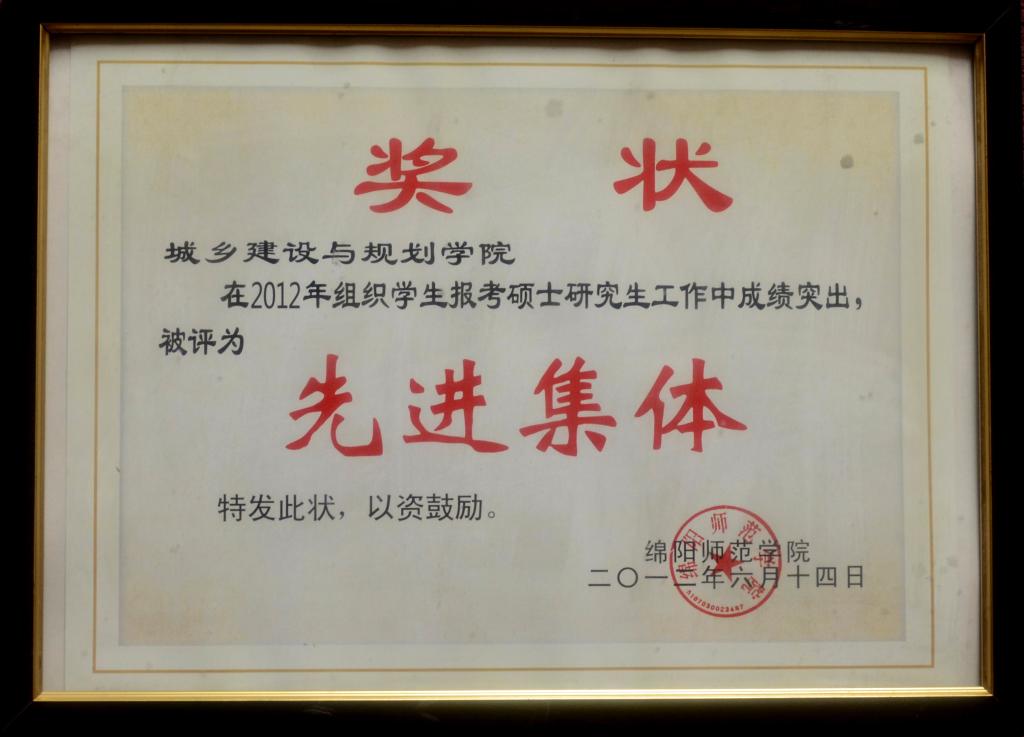 奖 状
城乡建设与规划学院
在2012年组织学生报考硕士研究生工作中成绩突出，
被评为
先进集体
特发此状，以资鼓励。
绵阳师范学院
二〇一二年六月十四日
绵阳师范学院